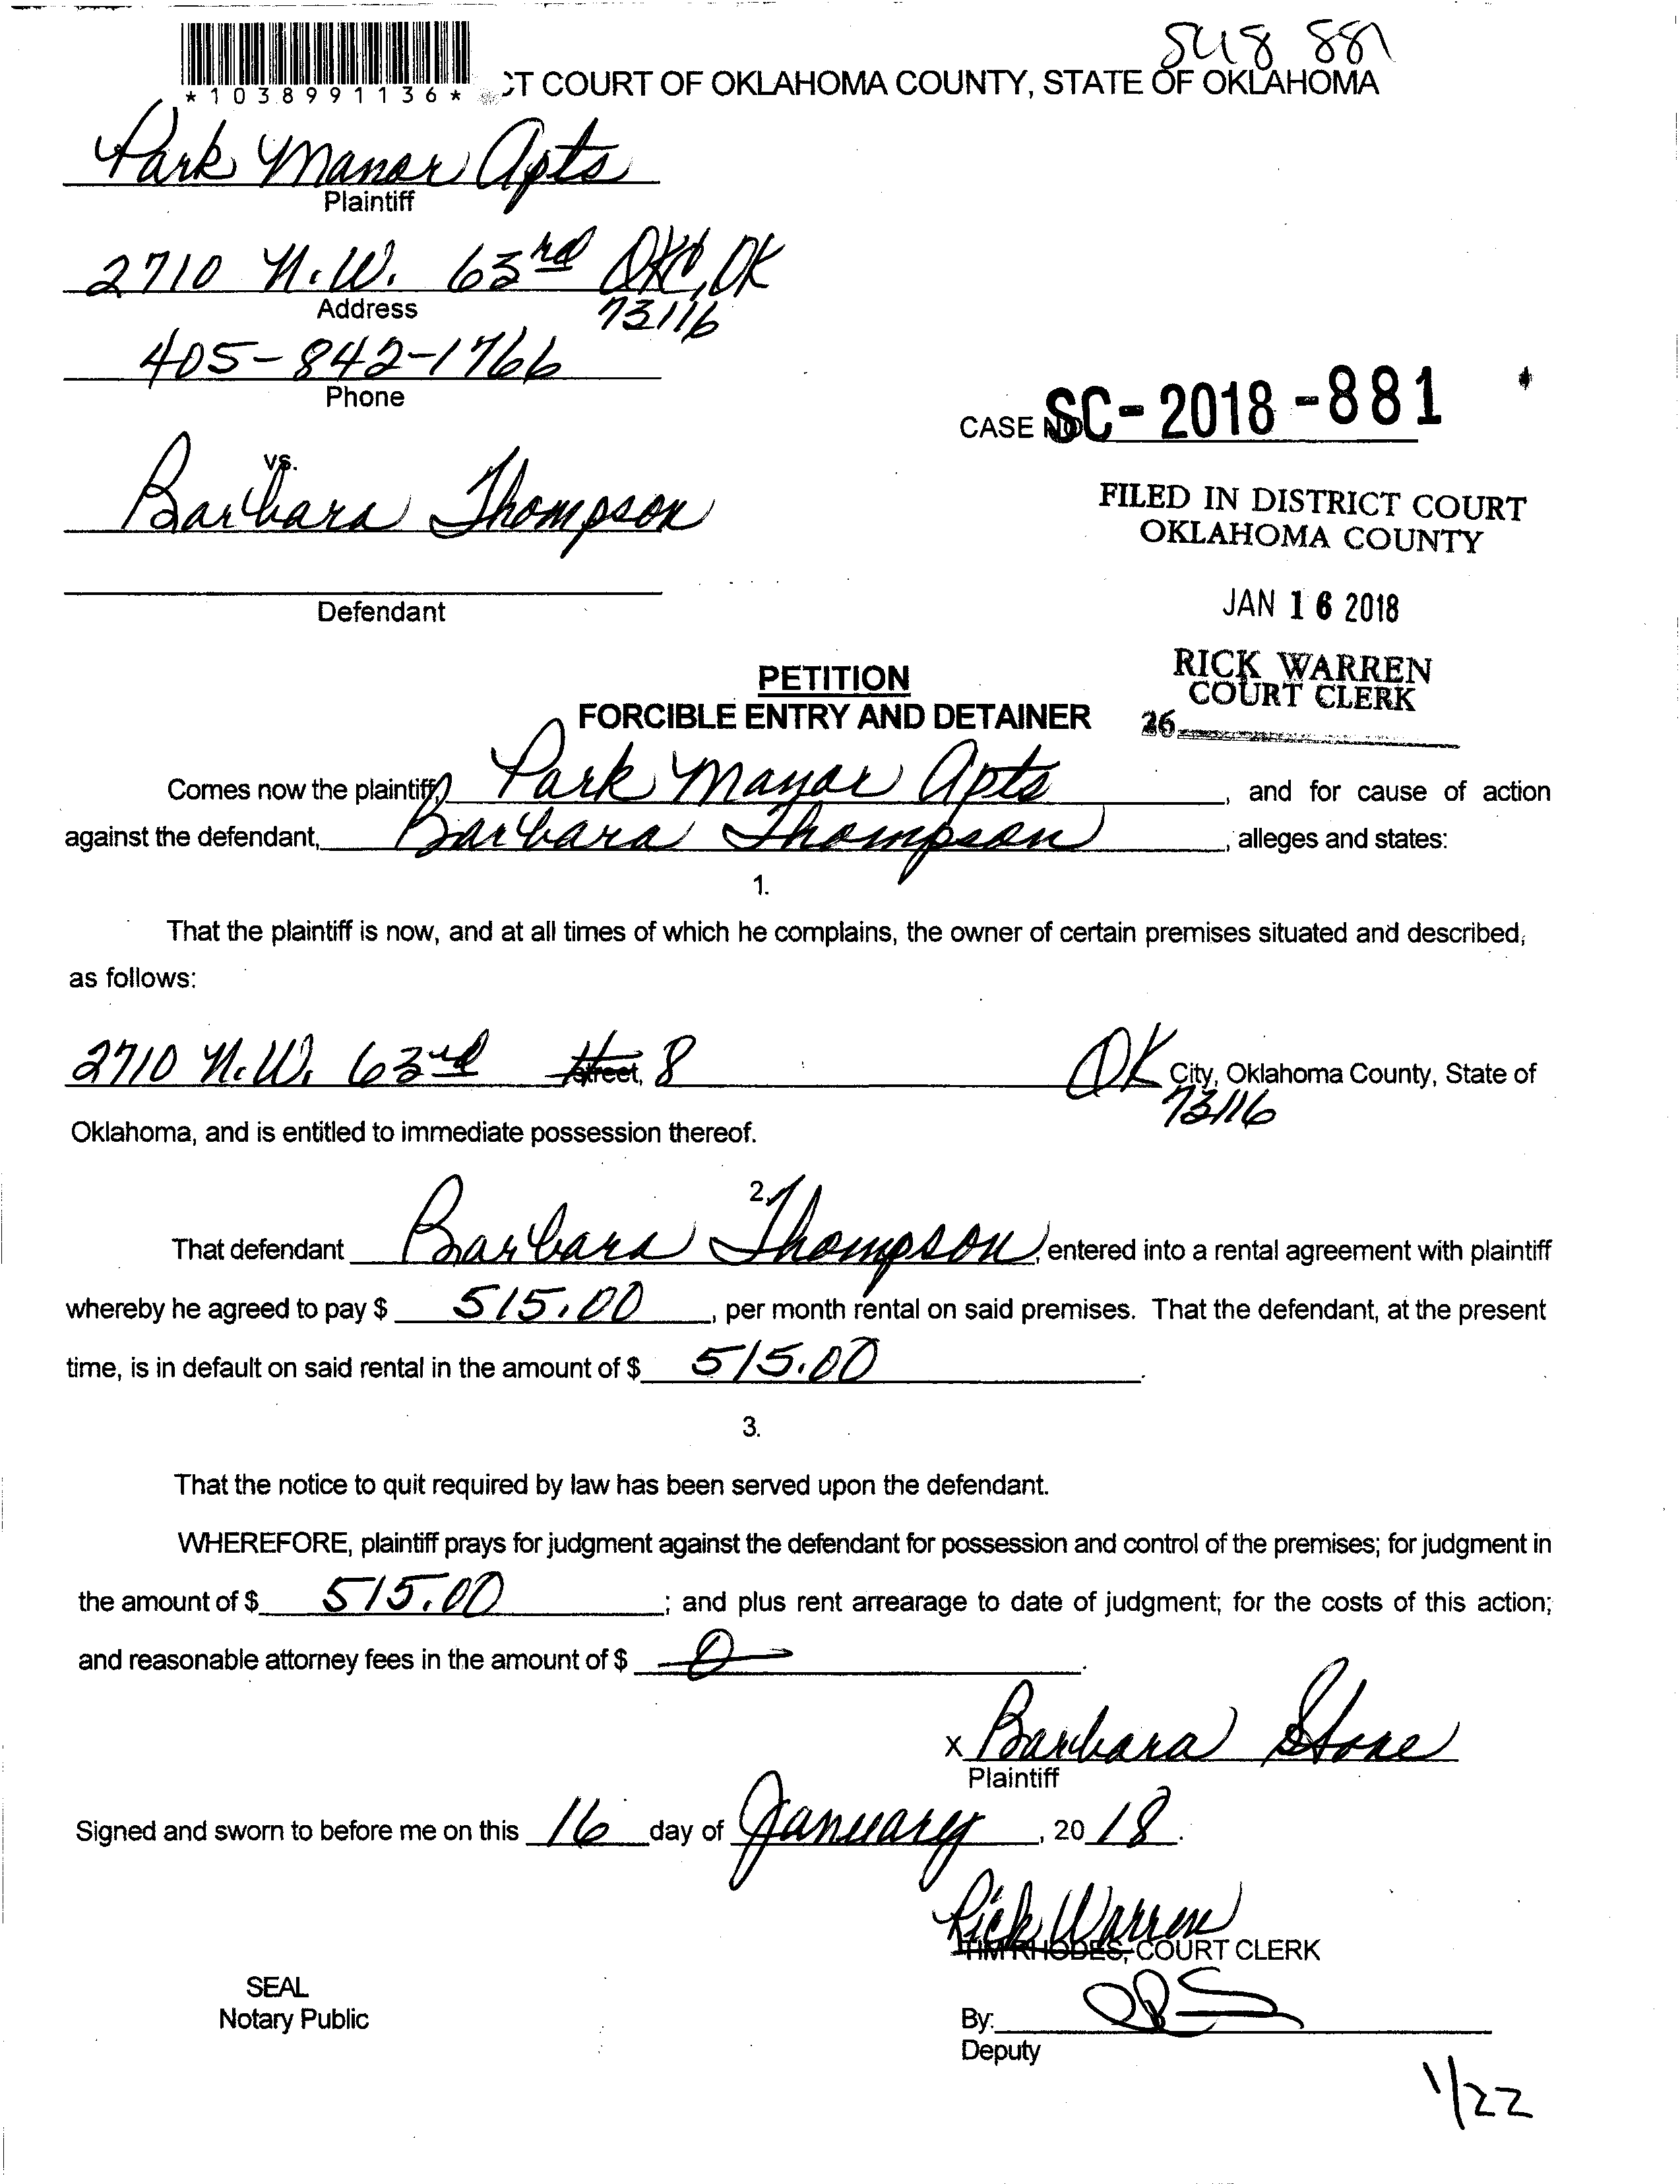 SC18 881
*1038991136* CT COURT OF OKLAHOMA COUNTY, STATE OF OKLAHOMA
Park Manor Apts
Plaintiff
2710 N.W. 63rd OKC, OK
Address 73116
405-842-1766
Phone
CASE NO SC-2018-881
vs.
Barbara Thompson
FILED IN DISTRICT COURT
OKLAHOMA COUNTY
Defendant
JAN 16 2018
RICK WARREN
COURT CLERK
26
PETITION
FORCIBLE ENTRY AND DETAINER
Comes now the plaintiff, Park Manor Apts, and for cause of action
against the defendant, Barbara Thompson, alleges and states:
1.
That the plaintiff is now, and at all times of which he complains, the owner of certain premises situated and described,
as follows:
2710 N.W. 63rd Street, 8 OK City, Oklahoma County, State of
73116
Oklahoma, and is entitled to immediate possession thereof.
2.
That defendant Barbara Thompson, entered into a rental agreement with plaintiff
whereby he agreed to pay $ 515.00, per month rental on said premises. That the defendant, at the present
time, is in default on said rental in the amount of $ 515.00.
3.
That the notice to quit required by law has been served upon the defendant.
WHEREFORE, plaintiff prays for judgment against the defendant for possession and control of the premises; for judgment in
the amount of $ 515.00; and plus rent arrearage to date of judgment; for the costs of this action;
and reasonable attorney fees in the amount of $ 0.
x Barbara Stone
Plaintiff
Signed and sworn to before me on this 16 day of January, 2018.
Rick Warren
TIM RHODES, COURT CLERK
SEAL
Notary Public
By:
Deputy
1/22